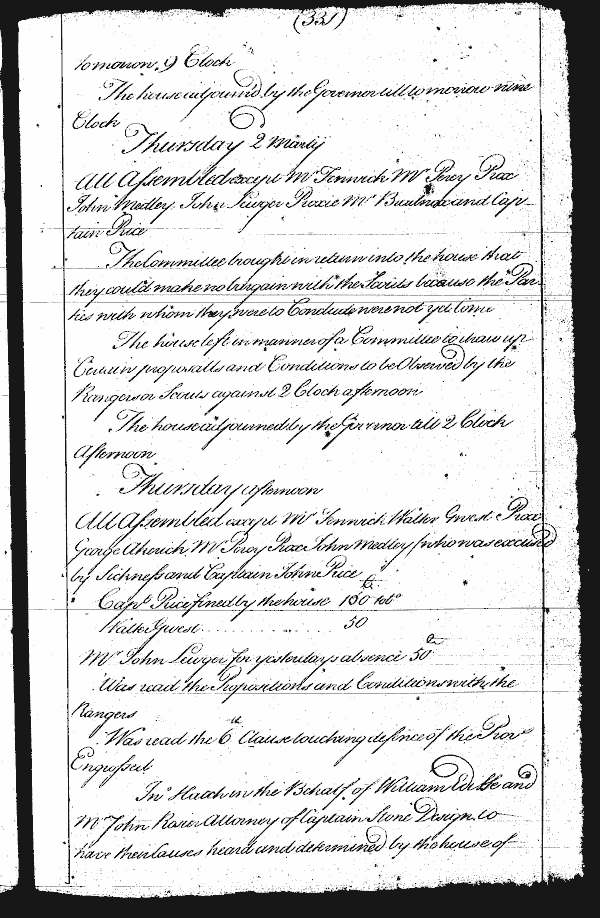 (331)
tomorrow 9 Clock
The house adjourned by the Governor till tomorrow nine
Clock
Thursday 2 March
All Assembled except Mr Fenwick Mr Percy Prox
John Medley John Lewger Proxie Mr and Cap-
tain Price
The Committee brought in return into the house that
they could make no bargain with the Scouts because the Par-
ties with whom they were to Conclude were not yet Come
The house left in manner of a Committee to draw up
Certain proposalls and Conditions to be Observed by the
Rangers or Scouts against 2 Clock afternoon
The house adjourned by the Governor till 2 Clock
Afternoon
Thursday afternoon
All Assembled except Mr Fenwick Walter Guest Prox
George Mr Percy Prox John Medley (who was excused
by Sickness and Captain John Price
Capt Price fined by the house 100 tobo
Walter Guest . . . . . . . . . . . 50
Mr John Lewger for yesterdays absence 50
Was read the Propositions and Conditions with the
Rangers
Was read the 6 Clause touching defence of the Provce
Engrossed
Jno Hatch in the Behalf of William and
Mr John Attorney of Captain Stone Design to
have their Causes heard and determined by the house of